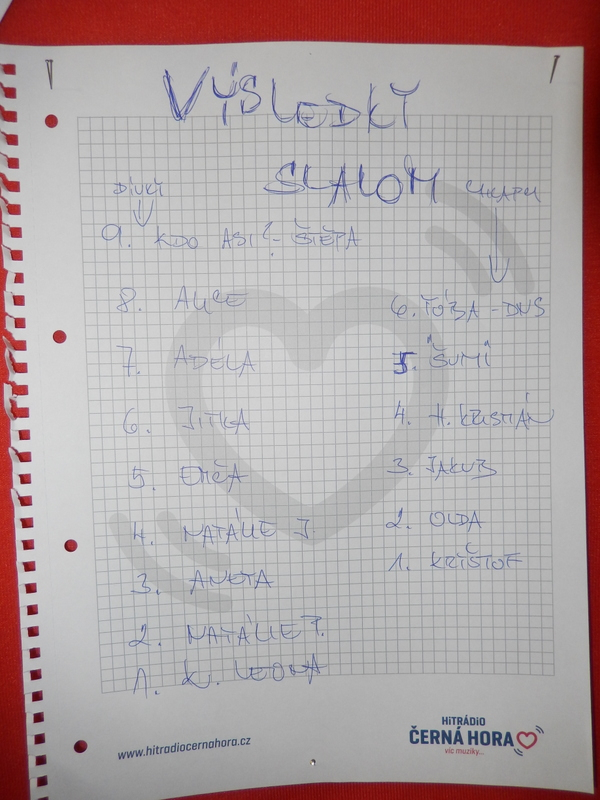 VÝSLEDKY
SLALOM
DÍVKY
9. KDO ASI?- ŠTĚPA
8. ALICE
7. ADÉLA
6. JITKA
5. EMČA
4. NATÁLIE J
3. ANETA
2. NATÁLIE P.
1. K. LEONA
CHLAPCI
6. TÓBA - DNS
5. "ŠUMI"
4. H. KRISTIÁN
3. JAKUB
2. OLDA
1. KRIŠTOF
www.hitradiocernahora.cz
HITRÁDIO
ČERNÁ HORA
víc muziky...